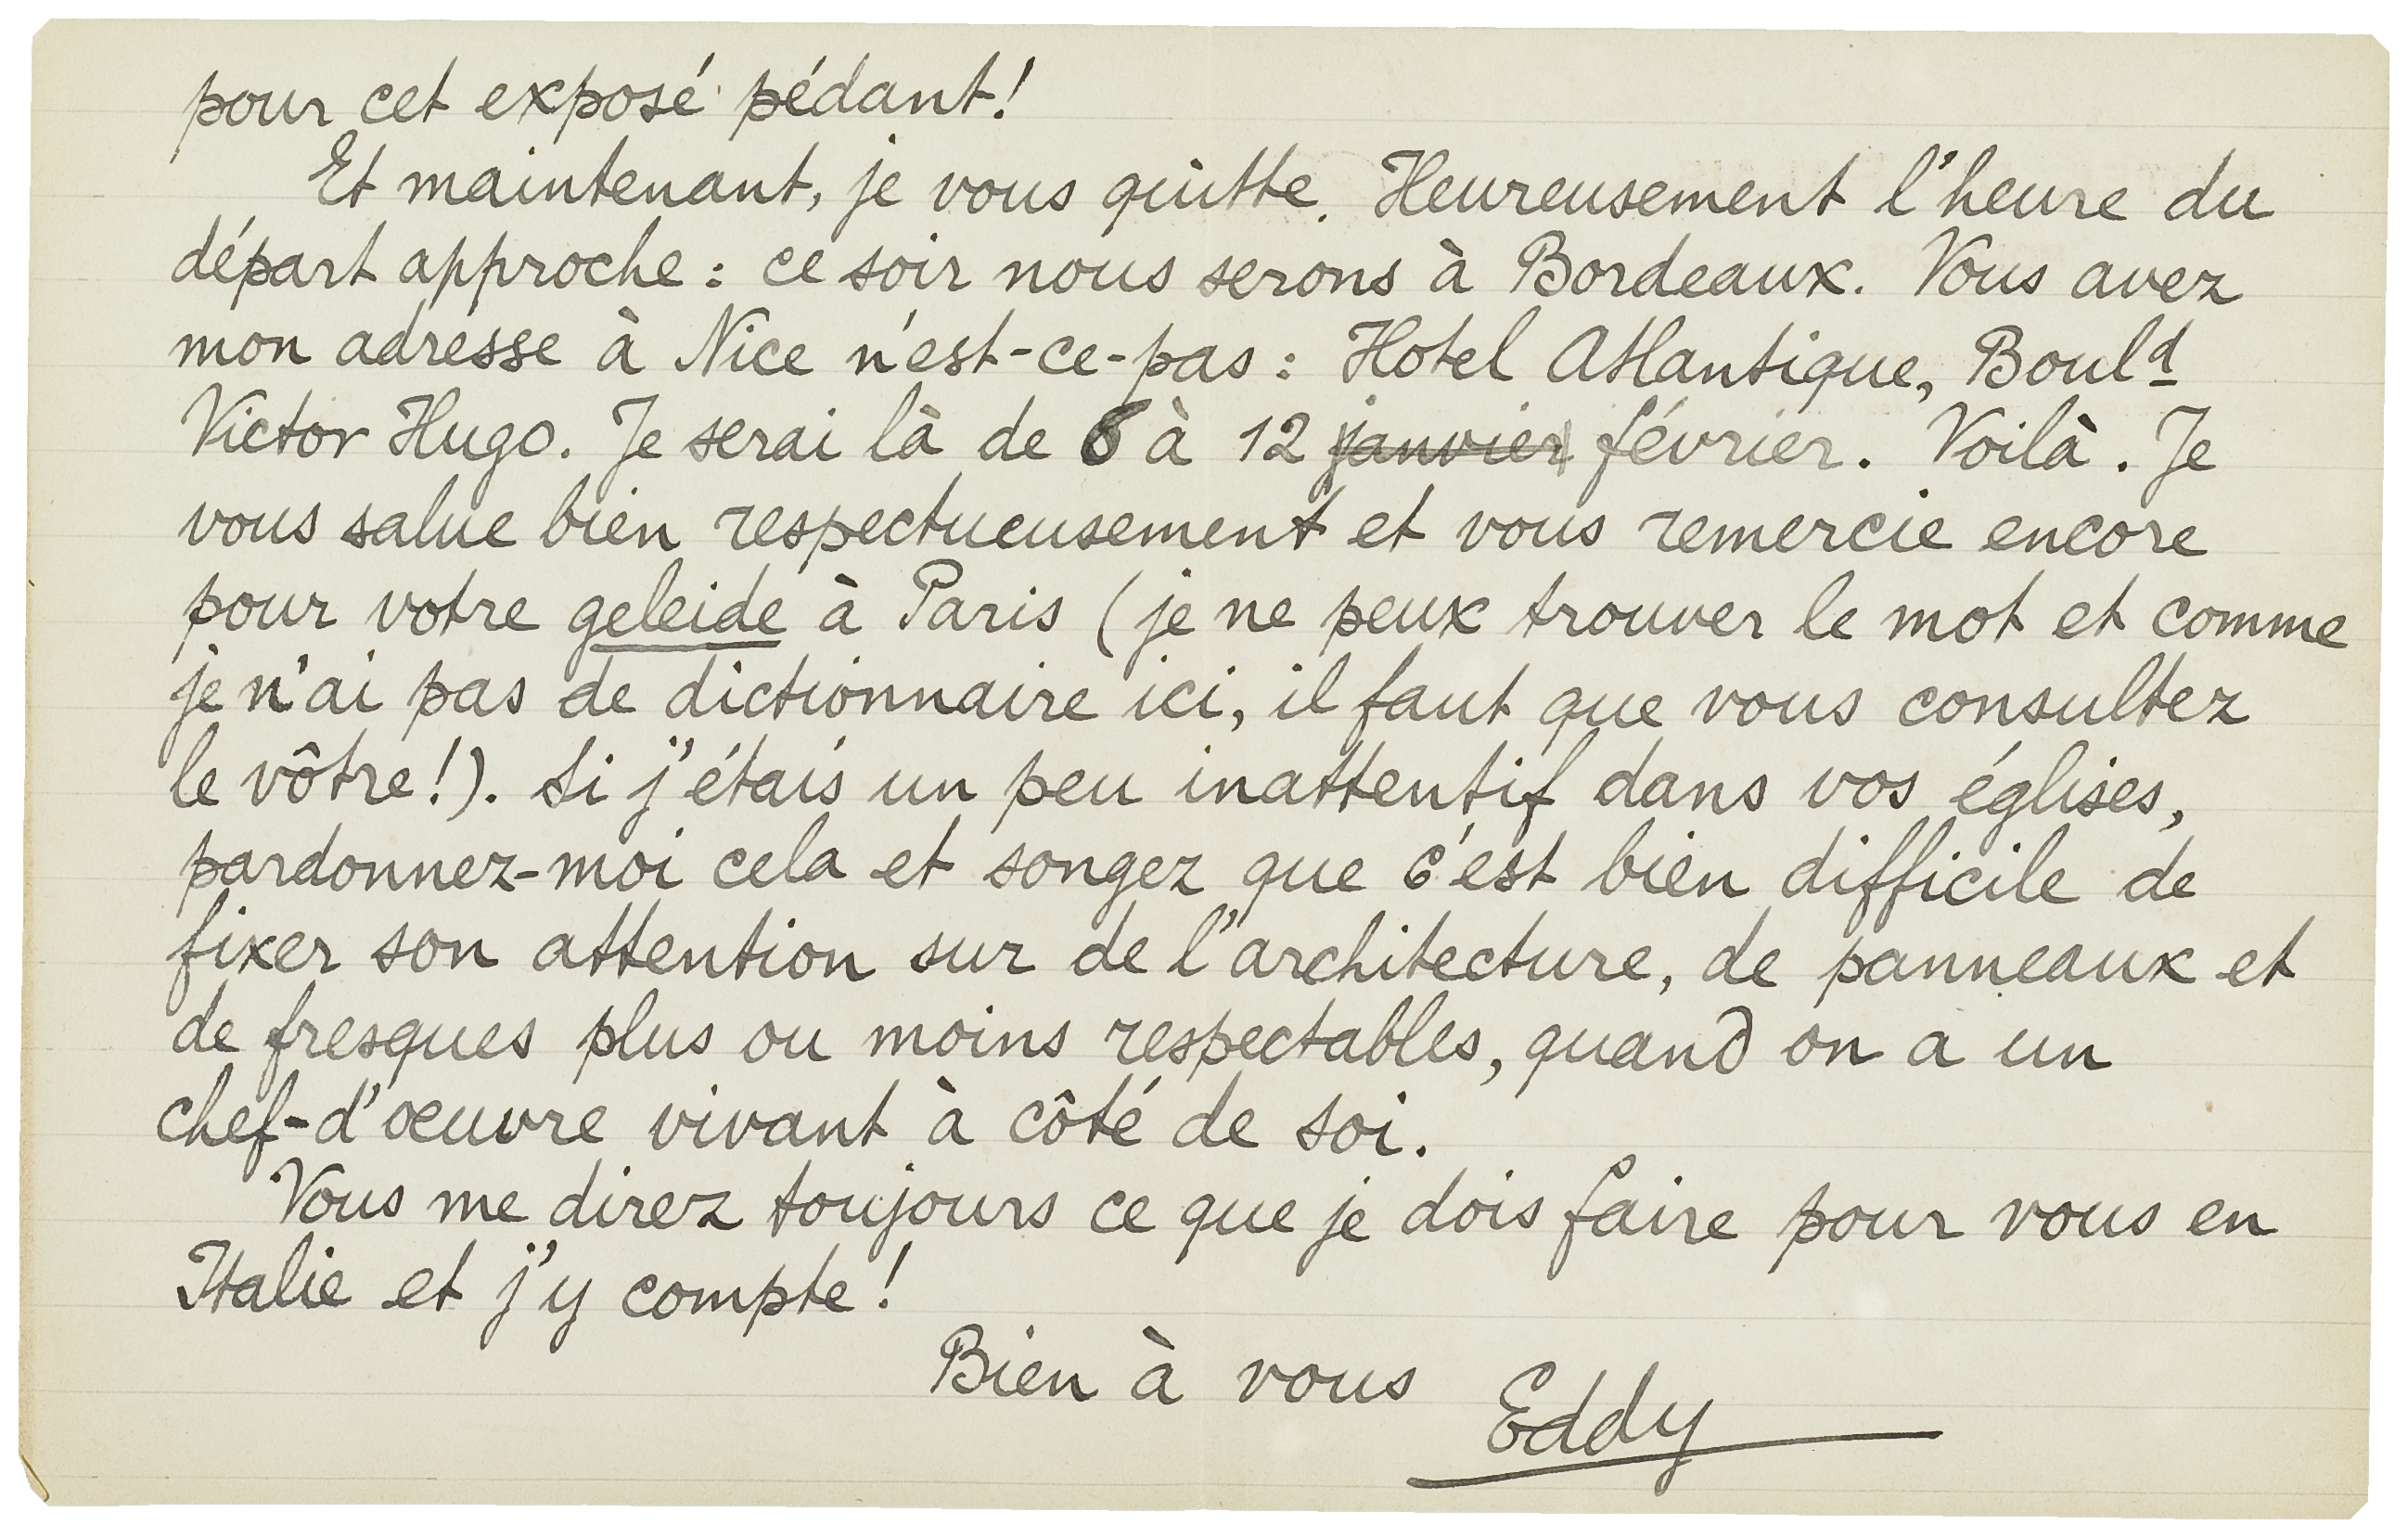 pour cet exposé pédant!
Et maintenant, je vous quitte. Heureusement l'heure du
départ approche : ce soir nous serons à Bordeaux. Vous avez
mon adresse à Nice n'est-ce-pas : Hotel Atlantique, Bould
Victor Hugo. Je serai là de 6 à 12 janvier février. Voilà. Je
vous salue bien respectueusement et vous remercie encore
pour votre geleide à Paris (je ne peux trouver le mot et comme
je n'ai pas de dictionnaire ici, il faut que vous consultez
le vôtre!). Si j'étais un peu inattentif dans vos églises,
pardonnez-moi cela et songez que c'est bien difficile de
fixer son attention sur de l'architecture, de panneaux et
de fresques plus ou moins respectables, quand on a un
chef-d'œuvre vivant à côté de soi.
Vous me direz toujours ce que je dois faire pour vous en
Italie et j'y compte!
Bien à vous Eddy